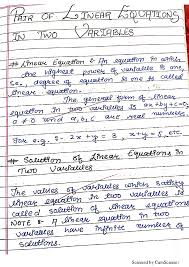 PAIR OF LINEAR EQUATIONS
IN TWO VARIABLES
# Linear Equation :- An equation in which
the highest power of variables is one
i.e., degree of equation is one is called
linear equation.
The general form of linear
equation in two variables is ax+by+c=0,
a ≠ 0 and a, b, c are real numbers
For e.g. :- 2x + y = 3, x+y = 5, etc.
# Solution of Linear Equations in
Two Variables
The values of variables which satisfy
linear equation in two variables is
called solution of linear equations
NOTE :- A linear equation in two
variables have infinite number of
solutions.
Scanned by CamScanner